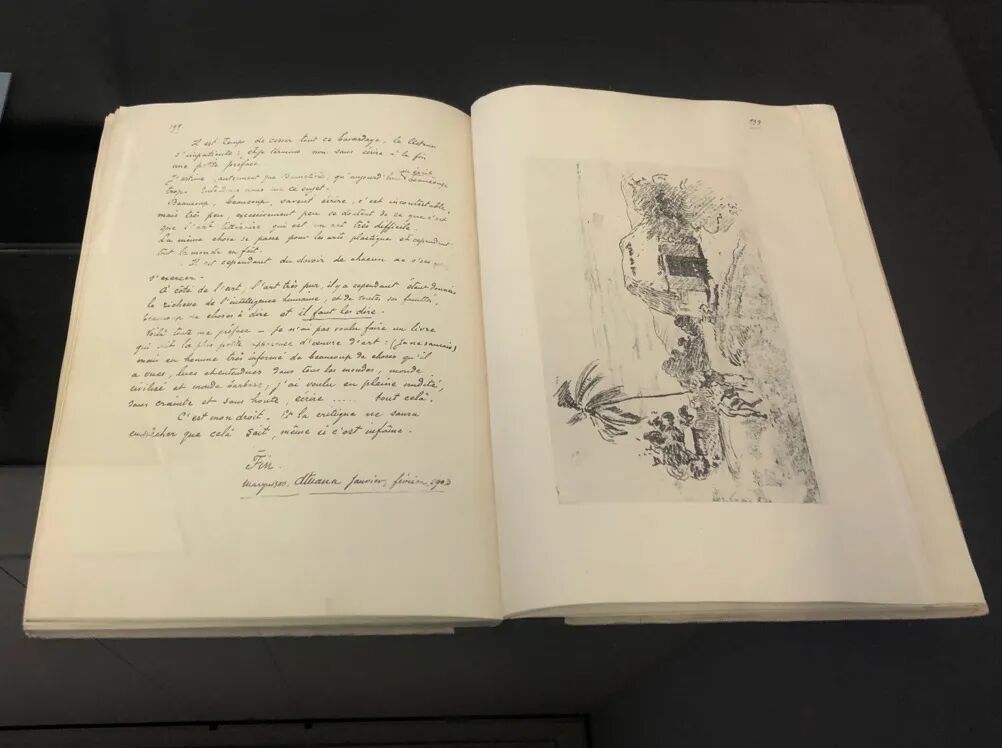 Il est temps de cesser tout ce bavardage, le lecteur
s'impatiente; et je termine non sans écrire à la fin
une petite préface.
J'estime, autrement que Brunetière, qu'aujourd'hui on écrit beaucoup
trop. Entendons nous sur ce sujet.
Beaucoup, beaucoup, savent écrire, c'est incontestable
mais très peu, excessivement peu se doutent de ce que c'est
que l'art littéraire qui est un art très difficile.
La même chose se passe pour les arts plastiques et cependant
tout le monde en fait.
Il est cependant du devoir de chacun de s'essayer,
s'exercer.
A côté de l'art, l'art très pur, il y a cependant étant donnée
la richesse de l'intelligence humaine, et de toutes ses facultés,
beaucoup de choses à dire et il faut les dire.
Voilà toute ma préface — Je n'ai pas voulu faire un livre
qui ait la plus petite apparence d'œuvre d'art : (Je ne saurais)
mais en homme très informé de beaucoup de choses qu'il
a vues, lues et entendues dans tous les mondes, monde
civilisé et monde barbare, j'ai voulu en pleine nudité,
sans crainte et sans honte, écrire ..... tout celà.
C'est mon droit. Et la critique ne saura
empêcher que celà soit, même si c'est infâme.
Fin.
Marquises. Atuana Janvier, février 1903
199